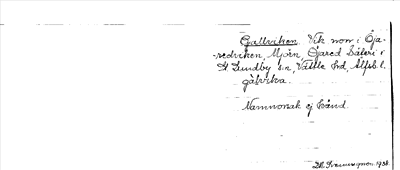 Gallviken. Vik nom i Öja-
redviken, Mjörn, Öjared Säteri i
St Lundby s:n, Vättle hd, Älfsb. l.
Namnorsak ej känd.
1938.